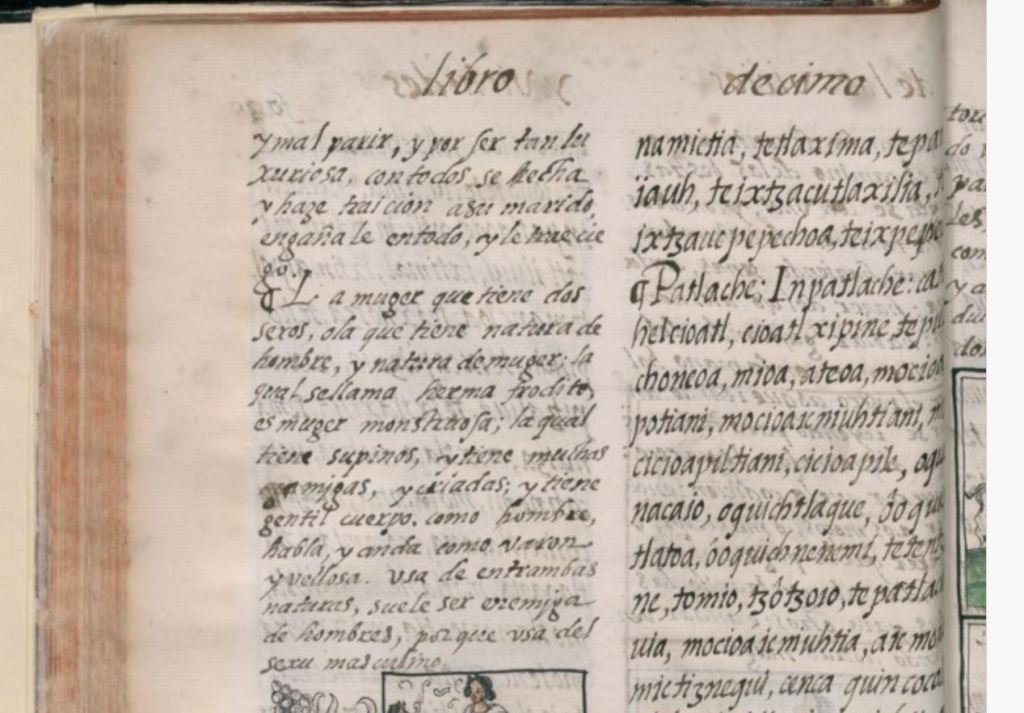 libro
de cimo
y mal parir, y por ser tan lu
xuriosa, con todos se hecha
y haze traicion a su marido,
engaña le en todo, y le trae cie
go.
¶ La muger que tiene dos
sexos, o la que tiene natura de
hombre, y natura de muger: la
qual se llama herma frodito,
es muger monstruosa; la qual
tiene supinos, y tiene muchas
amigas, y criadas; y tiene
gentil cuerpo. como hombre,
habla, y anda como varon
y vellosa. vsa de entrambas
naturas, suele ser enemiga
de hombres, porque vsa del
sexu masculino.
namictia, tetlaxima, tepa
iauh, teixtzacutlaxilia,
ixtzauc pepechoa, teixpepe
¶ Patlache: In patlache: ca
helcioatl, cioatl xipine tepu
choneoa, mioa, ateoa, mocioa
potiani, mocioaicniuhtiani, m
cicioapiltiani, cicioapile, oqu
nacaio, oquichtlaque, óoqu
tlatoa, óoquichnenemi, tetentz
ne, tomio, tzótzoio, tepatla
uia, mocioaicniuhtia, aic mo
mictiznequi, cenca quin coco
tou
do
pa
les,
com
y a
du
do